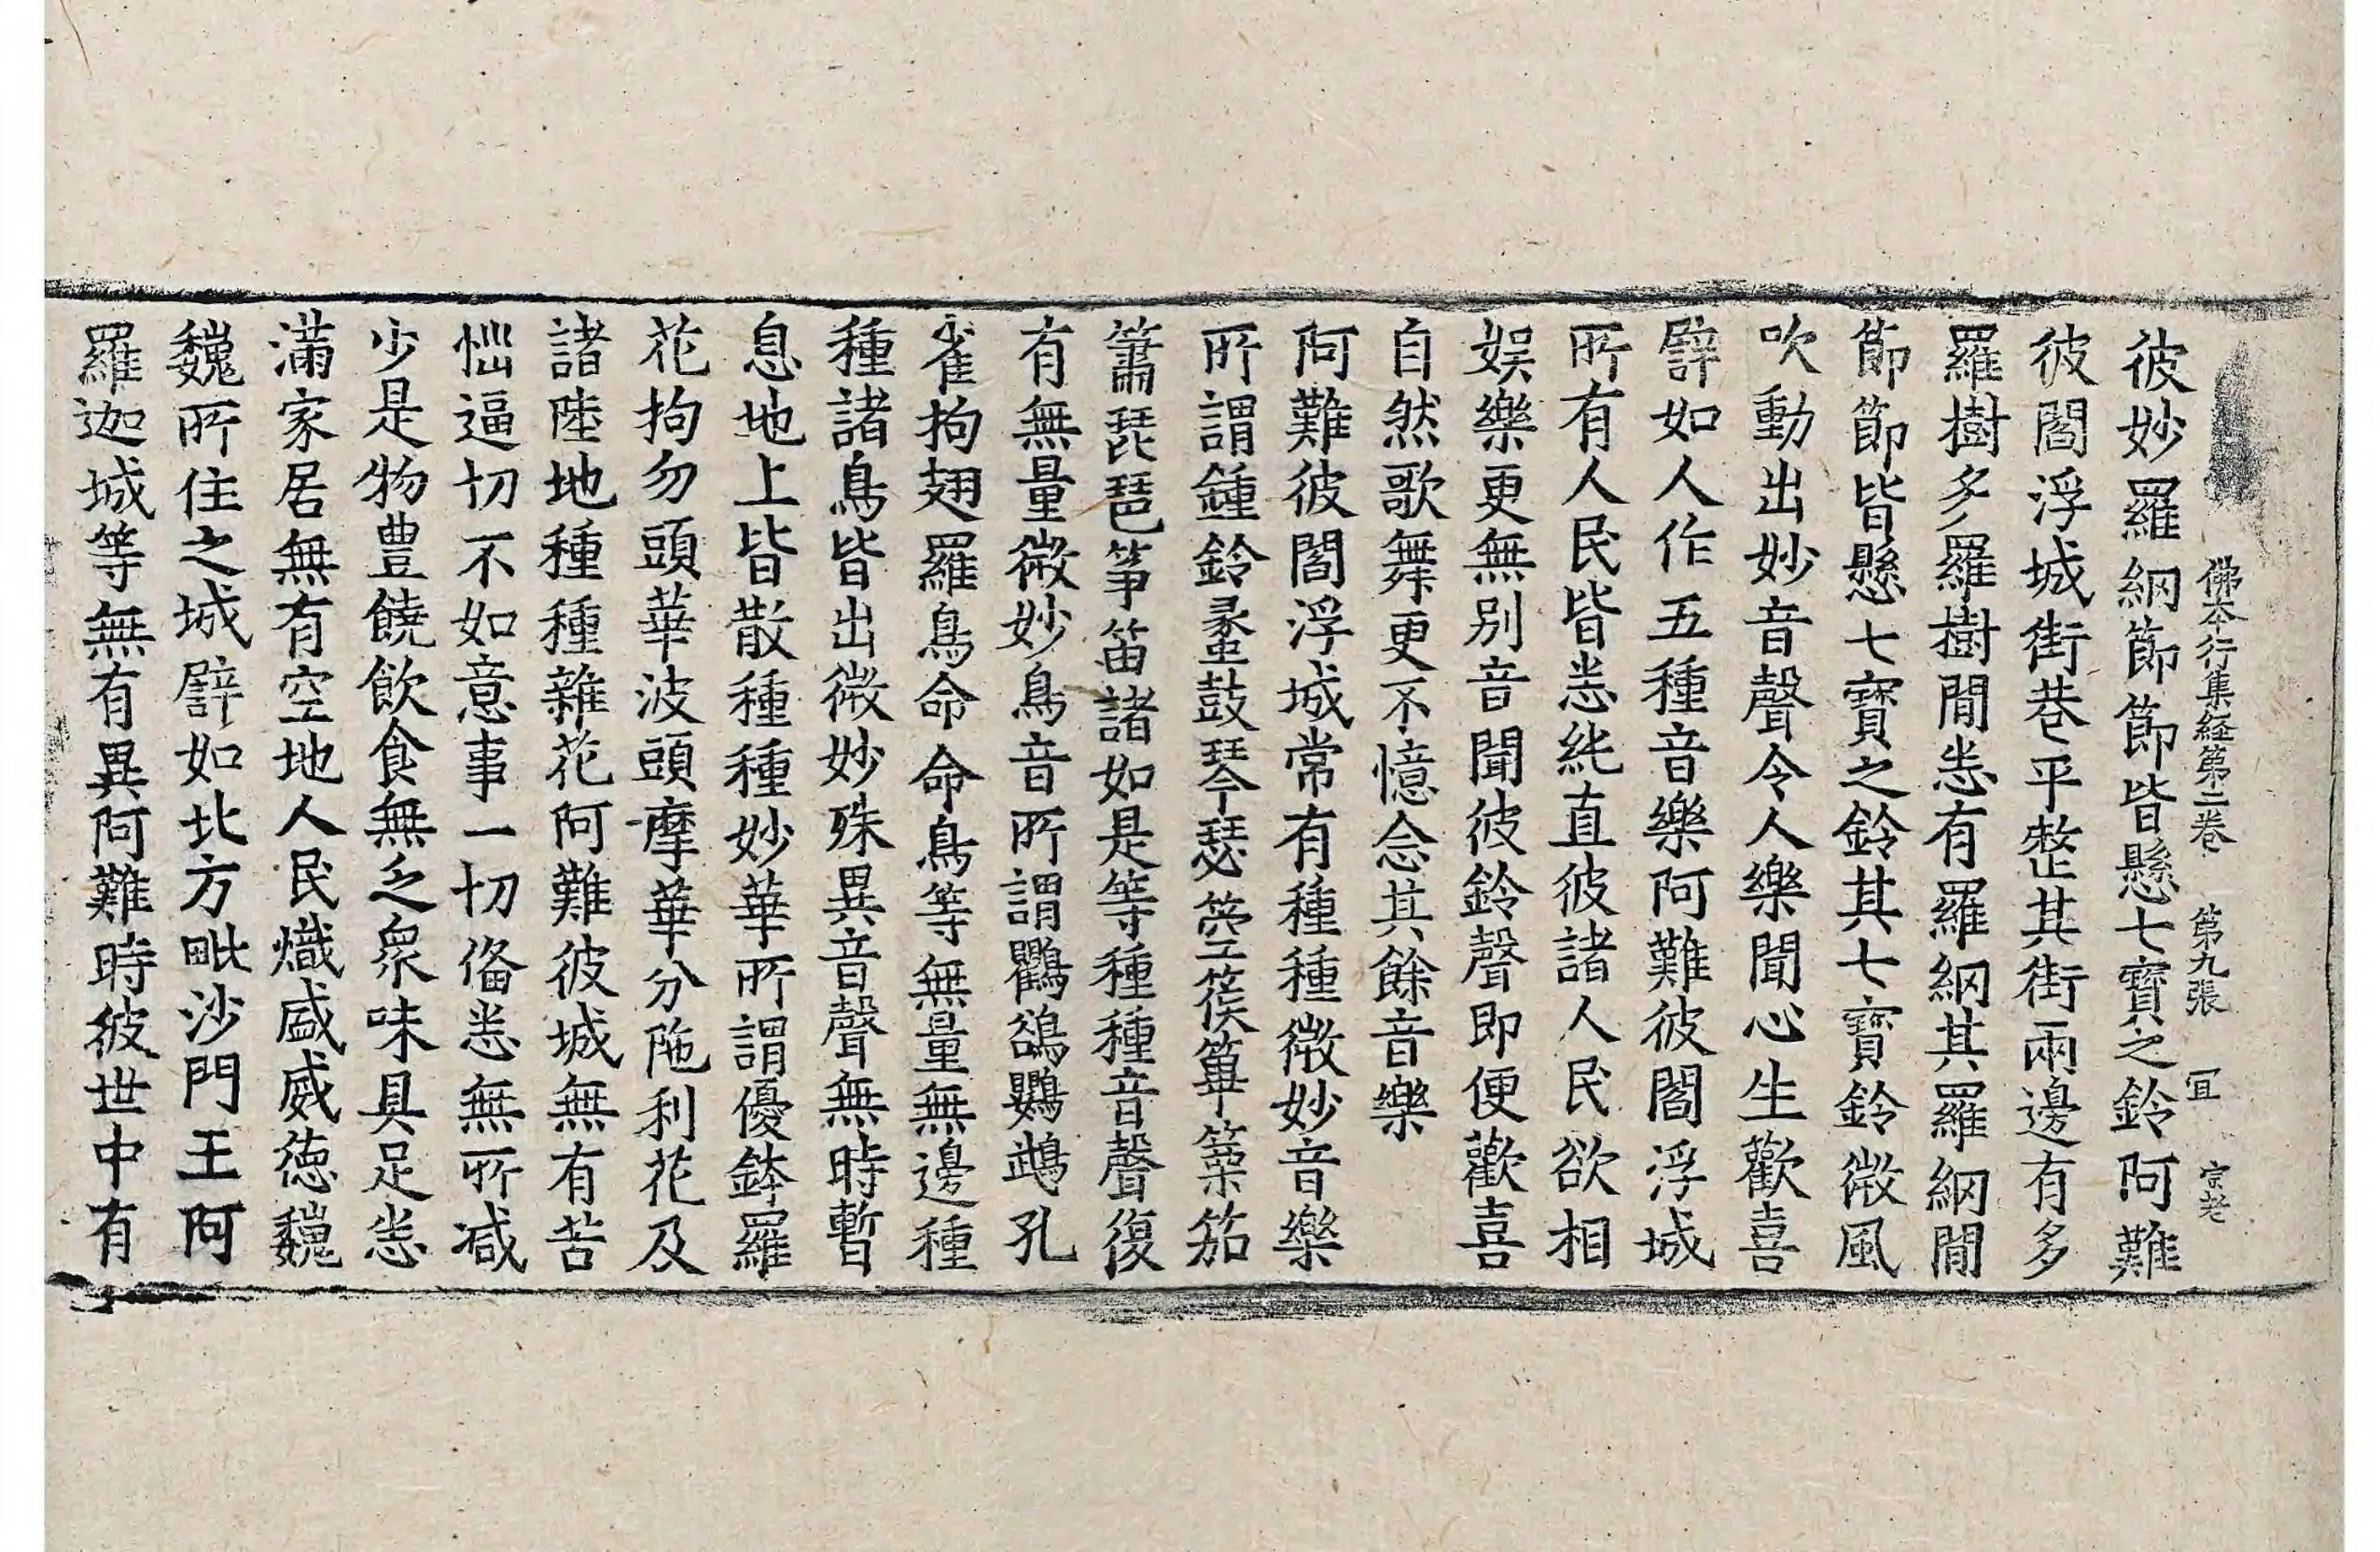 佛本行集経第二卷 第九張 冝 宗老
彼妙羅網節節皆懸七寶之鈴阿難
彼閻浮城街巷平整其街兩邊有多
羅樹多羅樹間悉有羅網其羅網間
節節皆懸七寶之鈴其七寶鈴微風
吹動出妙音聲令人樂聞心生歡喜
譬如人作五種音樂阿難彼閻浮城
所有人民皆悉純直彼諸人民欲相
娛樂更無別音聞彼鈴聲即便歡喜
自然歌舞更不憶念其餘音樂
阿難彼閻浮城常有種種微妙音樂
所謂鍾鈴蠡鼓琴瑟箜篌篳篥笳
簫琵琶筝笛諸如是等種種音聲復
有無量微妙鳥音所謂鸜鵒鸚鵡孔
雀拘翅羅鳥命命鳥等無量無邊種
種諸鳥皆出微妙殊異音聲無時暫
息地上皆散種種妙華所謂優鉢羅
花拘勿頭華波頭摩華分陁利花及
諸陸地種種雜花阿難彼城無有苦
惱逼切不如意事一切俻悉無所减
少是物豊饒飲食無乏衆味具足悉
滿家居無有空地人民熾盛威徳巍
巍所住之城譬如北方毗沙門王阿
羅迦城等無有異阿難時彼世中有